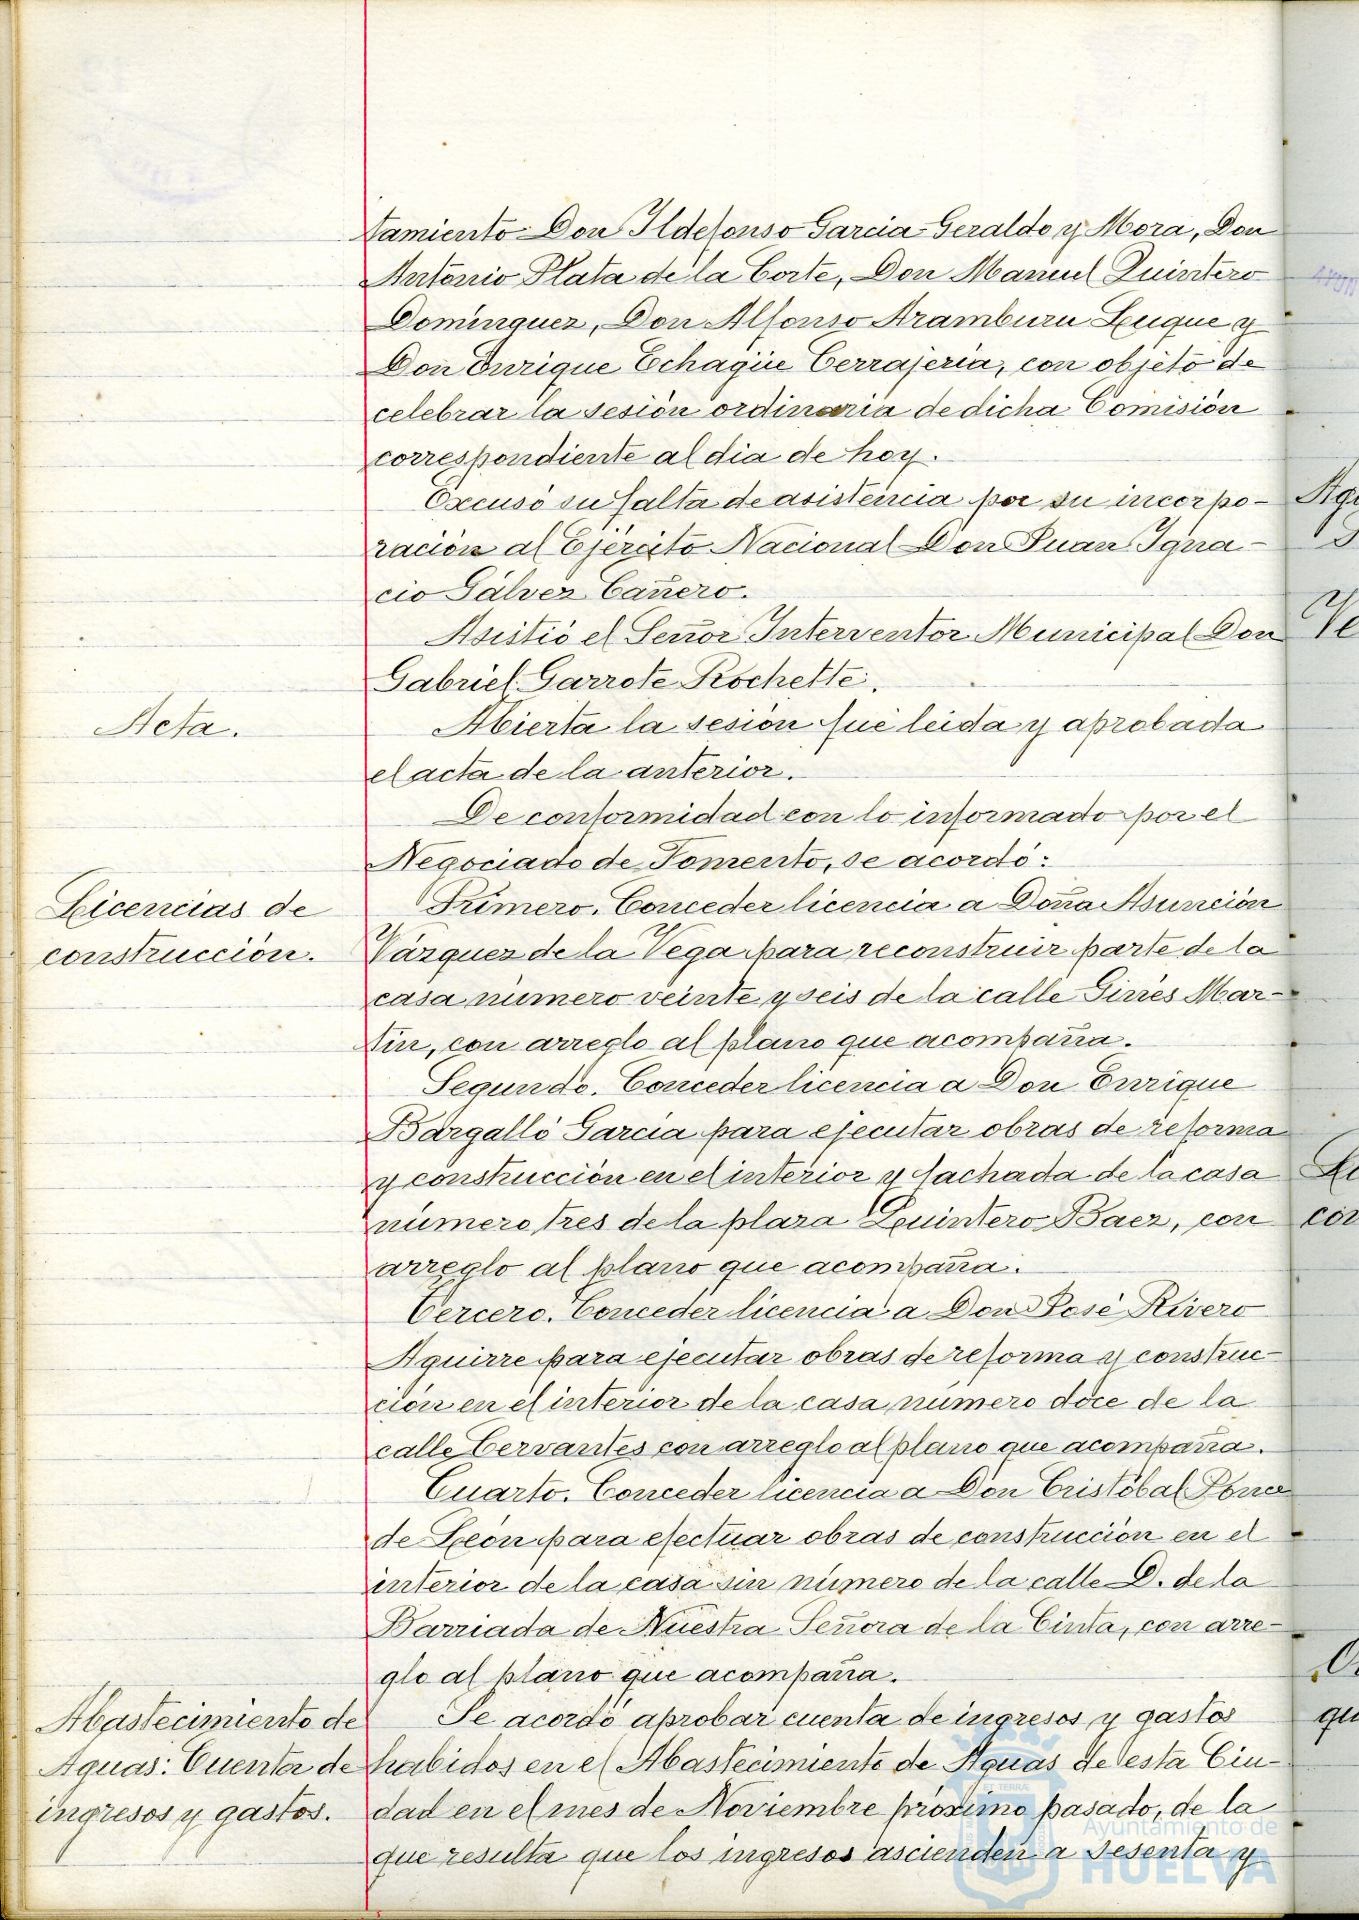 tamiento Don Ildefonso Garcia-Geraldo y Mora, Don
Antonio Plata de la Corte, Don Manuel Quintero
Domínguez, Don Alfonso Aramburu Luque y
Don Enrique Echagüe Cerrajería, con objeto de
celebrar la sesión ordinaria de dicha Comisión
correspondiente al dia de hoy.
Excusó su falta de asistencia por su incorpo-
ración al Ejército Nacional Don Juan Igna-
cio Gálvez Cañero.
Asistió el Señor Interventor Municipal Don
Gabriel Garrote Rochette.
Acta.
Abierta la sesión fué leida y aprobada
el acta de la anterior.
De conformidad con lo informado por el
Negociado de Fomento, se acordó:
Licencias de
construcción.
Primero. Conceder licencia a Doña Asunción
Vázquez de la Vega para reconstruir parte de la
casa número veinte y seis de la calle Ginés Mar-
tín, con arreglo al plano que acompaña.
Segundo. Conceder licencia a Don Enrique
Bargalló García para ejecutar obras de reforma
y construcción en el interior y fachada de la casa
número tres de la plaza Quintero Baez, con
arreglo al plano que acompaña.
Tercero. Conceder licencia a Don José Rivero
Aguirre para ejecutar obras de reforma y construc-
ción en el interior de la casa número doce de la
calle Cervantes con arreglo al plano que acompaña.
Cuarto. Conceder licencia a Don Cristóbal Ponce
de León para efectuar obras de construcción en el
interior de la casa sin número de la calle D. de la
Barriada de Nuestra Señora de la Cinta, con arre-
glo al plano que acompaña.
Abastecimiento de
Aguas: Cuenta de
ingresos y gastos.
Se acordó aprobar cuenta de ingresos y gastos
habidos en el Abastecimiento de Aguas de esta Ciu-
dad en el mes de Noviembre próximo pasado, de la
que resulta que los ingresos ascienden a sesenta y
Ayuntamiento de
HUELVA